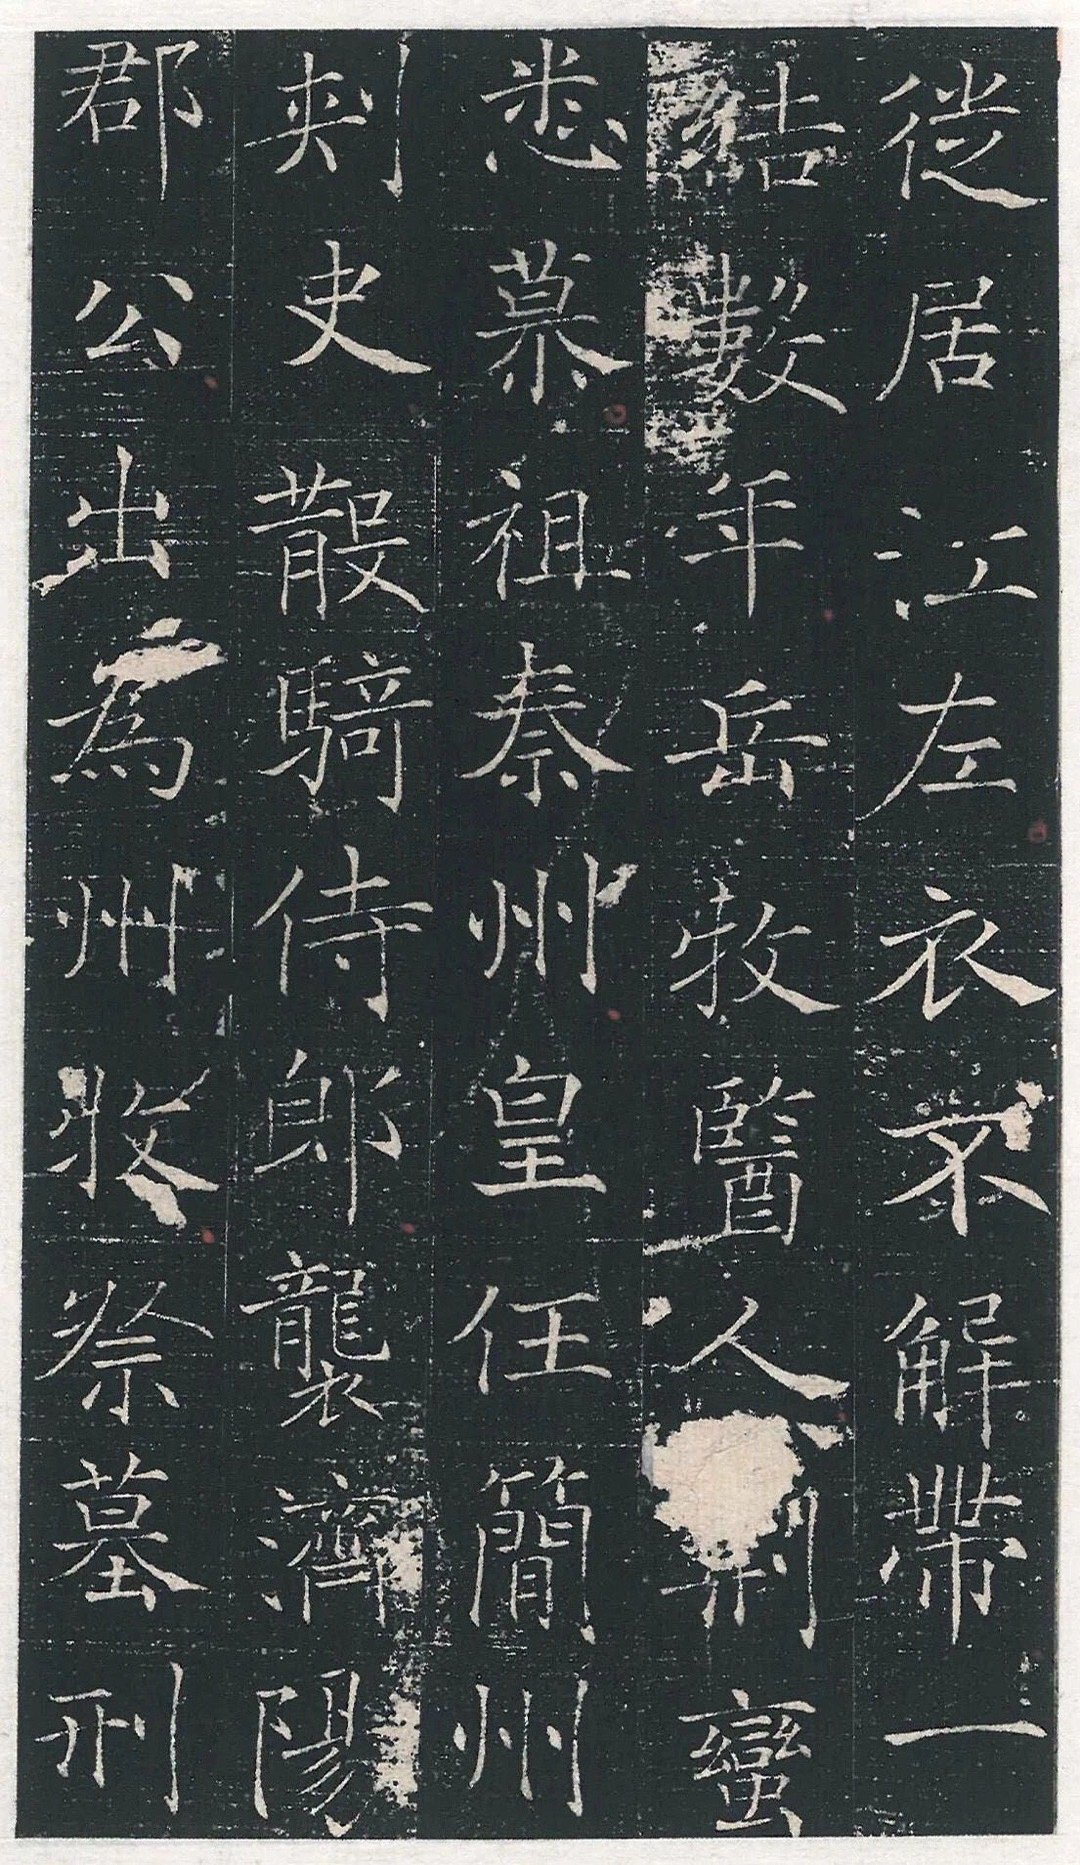 從居江左衣不解帶一
結數年岳牧醫人荊蠻
悉慕祖秦州皇任簡州
刺史散騎侍郎襲濟陽
郡公出為州牧祭墓刑